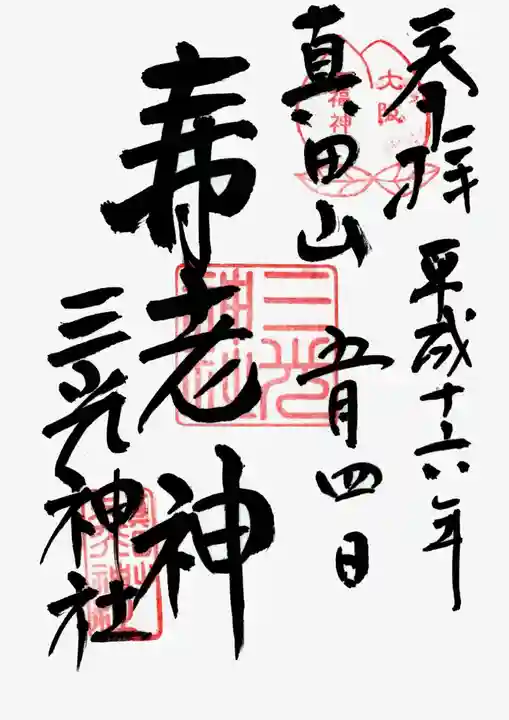 奉拝
平成十六年
五月四日
真田山
寿老神
三光神社
大阪
福神
三光神社